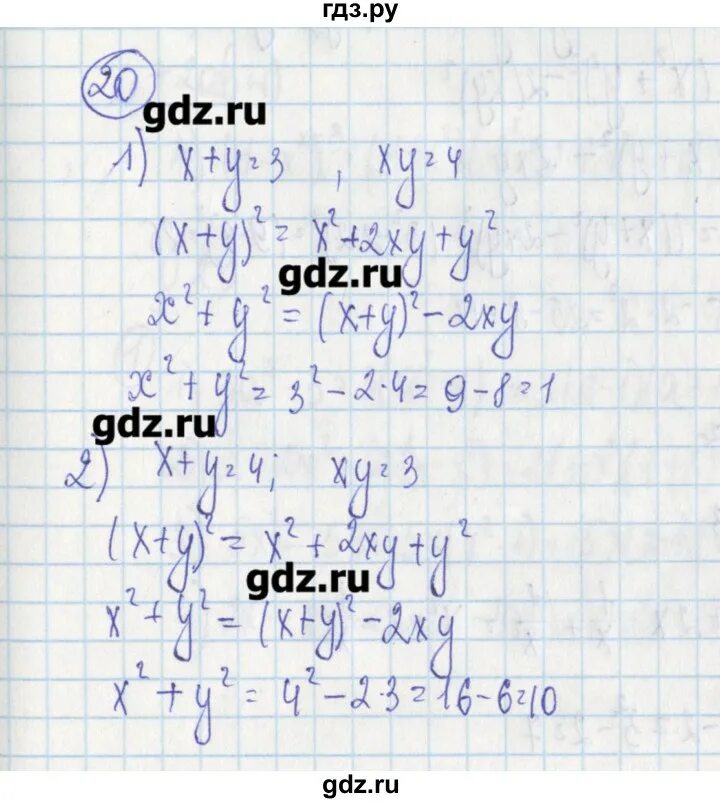 гдз.ру
20
gdz.ru
1) x+y=3 , xy=4
(x+y)²=x²+2xy+y²
gdz.ru
x²+y²=(x+y)²-2xy
x²+y²=3²-2·4=9-8=1
gdz.ru
2) x+y=4; xy=3
(x+y)²=x²+2xy+y²
gdz.ru
x²+y²=(x+y)²-2xy
x²+y²=4²-2·3=16-6=10
gdz.ru